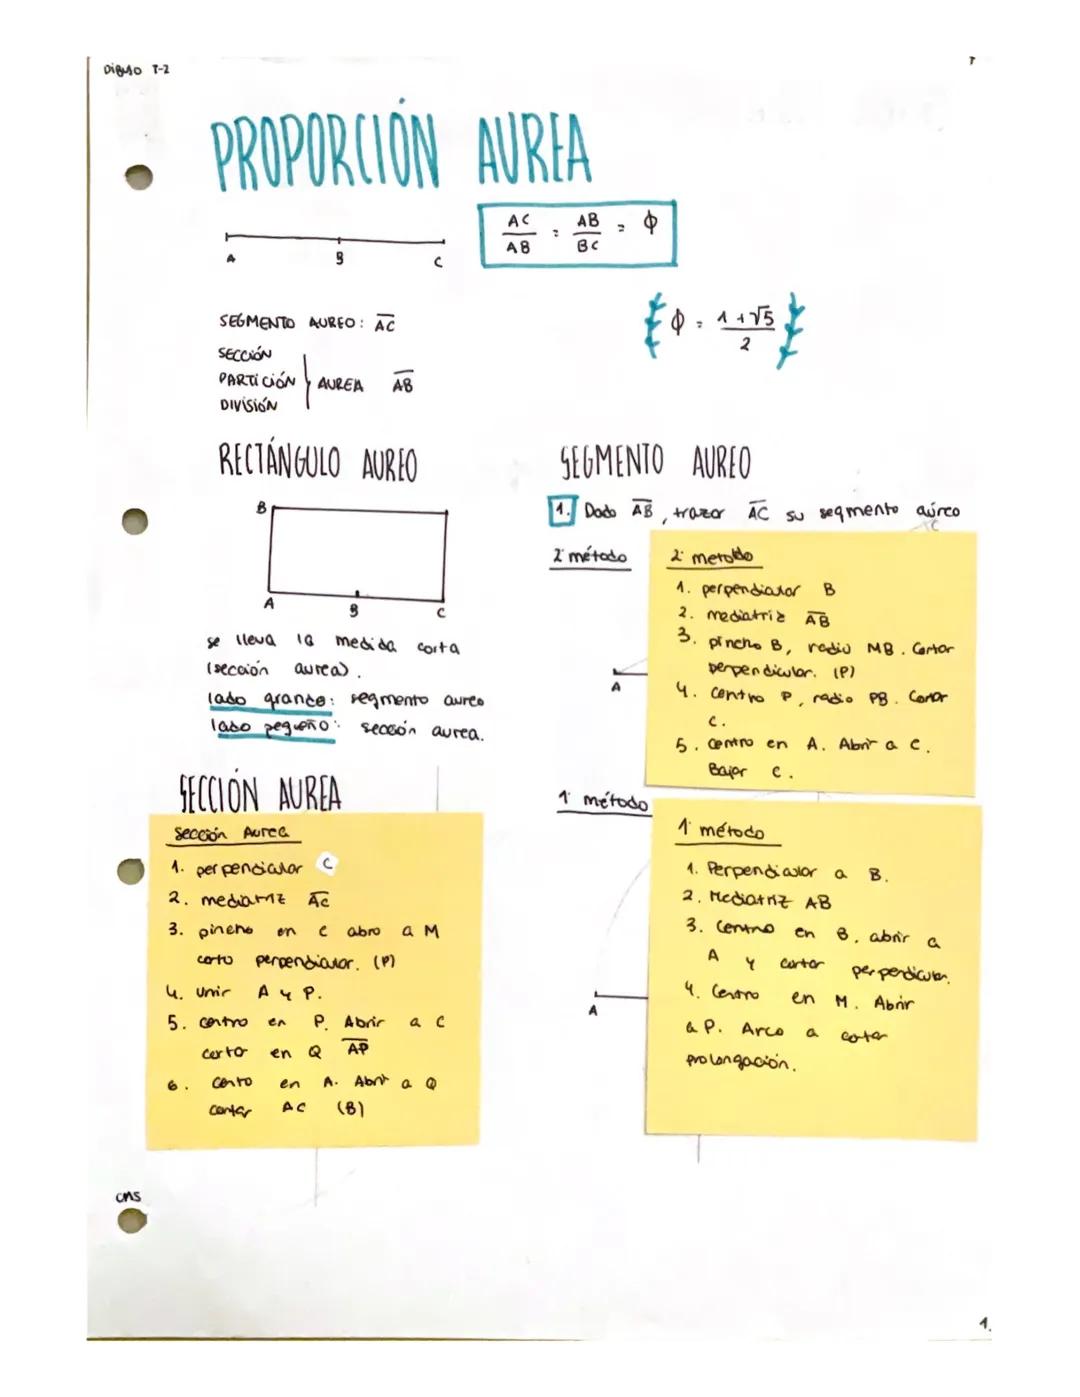 DIBUJO T-2
PROPORCIÓN AUREA
A B C
AC/AB = AB/BC = ϕ
ϕ = 1+√5/2
SEGMENTO AUREO: AC
SECCIÓN
PARTICIÓN
DIVISIÓN
AUREA AB
RECTÁNGULO AUREO
B
A B C
se lleva la medida corta
(sección aurea).
lado grande: segmento aureo
lado pequeño: sección aurea.
SECCIÓN AUREA
Sección Aurea
1. perpendicular C
2. mediatriz AC
3. pincho en C abro a M
corto perpendicular. (P)
4. Unir A y P.
5. centro en P. Abrir a C
corto en Q AP
6. Centro en A. Abrir a Q
cortar AC (B)
CMS
SEGMENTO AUREO
1. Dado AB, trazar AC su segmento aúreo
2º método
2º metoldo
1. perpendicular B
2. mediatriz AB
3. pincho B, radio MB. Cortar
perpendicular. (P)
4. Centro P, radio PB. Cortar
C.
5. Centro en A. Abrir a C.
Bajar C.
A
1º método
1º método
1. Perpendicular a B.
2. Mediatriz AB
3. Centro en B, abrir a
A y cortar perpendicular.
4. Centro en M. Abrir
a P. Arco a cortar
prolongación.
A
1.